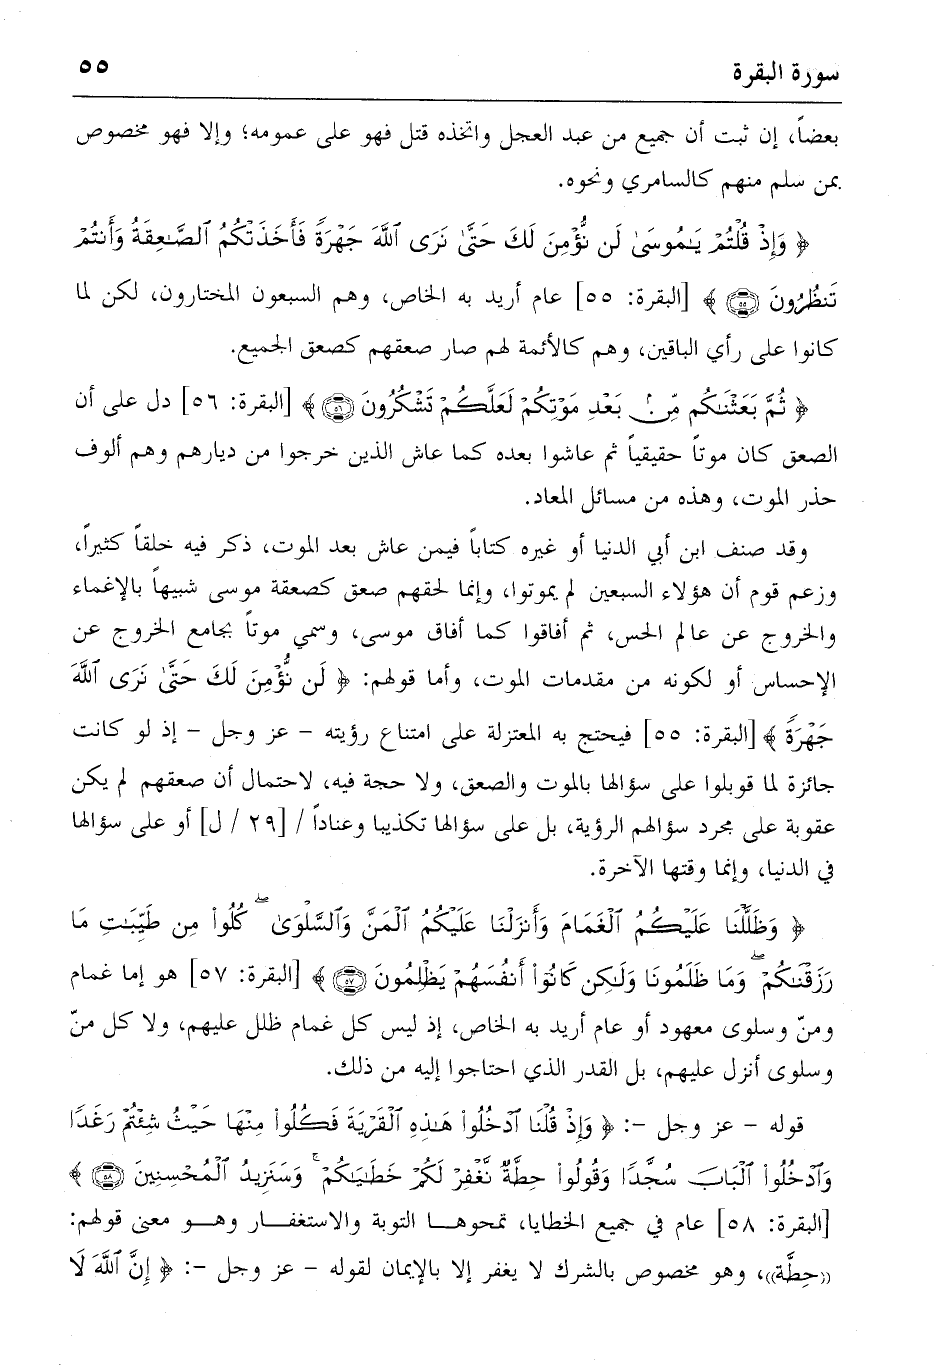 سورة البقرة ٥٥
بعضاً، إن ثبت أن جميع من عبد العجل واتخذه قتل فهو على عمومه؛ وإلا فهو مخصوص
بمن سلم منهم كالسامري ونحوه.
﴿ وَإِذْ قُلْتُمْ يَٰمُوسَىٰ لَن نُّؤْمِنَ لَكَ حَتَّىٰ نَرَى ٱللَّهَ جَهْرَةً فَأَخَذَتْكُمُ ٱلصَّٰعِقَةُ وَأَنتُمْ
تَنظُرُونَ ۝٥٥ ﴾ [البقرة: ٥٥] عام أريد به الخاص، وهم السبعون المختارون، لكن لما
كانوا على رأي الباقين، وهم كالأئمة لهم صار صعقهم كصعق الجميع.
﴿ ثُمَّ بَعَثْنَٰكُم مِّنۢ بَعْدِ مَوْتِكُمْ لَعَلَّكُمْ تَشْكُرُونَ ۝٥٦ ﴾ [البقرة: ٥٦] دل على أن
الصعق كان موتاً حقيقياً ثم عاشوا بعده كما عاش الذين خرجوا من ديارهم وهم ألوف
حذر الموت، وهذه من مسائل المعاد.
وقد صنف ابن أبي الدنيا أو غيره كتاباً فيمن عاش بعد الموت، ذكر فيه خلقاً كثيراً،
وزعم قوم أن هؤلاء السبعين لم يموتوا، وإنما لحقهم صعق كصعقة موسى شبيهاً بالإغماء
والخروج عن عالم الحس، ثم أفاقوا كما أفاق موسى، وسمي موتاً بجامع الخروج عن
الإحساس أو لكونه من مقدمات الموت، وأما قولهم: ﴿ لَن نُّؤْمِنَ لَكَ حَتَّىٰ نَرَى ٱللَّهَ
جَهْرَةً ﴾ [البقرة: ٥٥] فيحتج به المعتزلة على امتناع رؤيته - عز وجل - إذ لو كانت
جائزة لما قوبلوا على سؤالها بالموت والصعق، ولا حجة فيه، لاحتمال أن صعقهم لم يكن
عقوبة على مجرد سؤالهم الرؤية، بل على سؤالها تكذيبا وعناداً / [٢٩ / ل] أو على سؤالها
في الدنيا، وإنما وقتها الآخرة.
﴿ وَظَلَّلْنَا عَلَيْكُمُ ٱلْغَمَامَ وَأَنزَلْنَا عَلَيْكُمُ ٱلْمَنَّ وَٱلسَّلْوَىٰ ۖ كُلُوا۟ مِن طَيِّبَٰتِ مَا
رَزَقْنَٰكُمْ ۖ وَمَا ظَلَمُونَا وَلَٰكِن كَانُوٓا۟ أَنفُسَهُمْ يَظْلِمُونَ ۝٥٧ ﴾ [البقرة: ٥٧] هو إما غمام
ومنّ وسلوى معهود أو عام أريد به الخاص، إذ ليس كل غمام ظلل عليهم، ولا كل منّ
وسلوى أنزل عليهم، بل القدر الذي احتاجوا إليه من ذلك.
قوله - عز وجل -: ﴿ وَإِذْ قُلْنَا ٱدْخُلُوا۟ هَٰذِهِ ٱلْقَرْيَةَ فَكُلُوا۟ مِنْهَا حَيْثُ شِئْتُمْ رَغَدًا
وَٱدْخُلُوا۟ ٱلْبَابَ سُجَّدًا وَقُولُوا۟ حِطَّةٌ نَّغْفِرْ لَكُمْ خَطَٰيَٰكُمْ ۚ وَسَنَزِيدُ ٱلْمُحْسِنِينَ ۝٥٨ ﴾
[البقرة: ٥٨] عام في جميع الخطايا، تمحوهـا التوبة والاستغفـار وهـو معنى قولهم:
((حِطَّة))، وهو مخصوص بالشرك لا يغفر إلا بالإيمان لقوله - عز وجل -: ﴿ إِنَّ ٱللَّهَ لَا